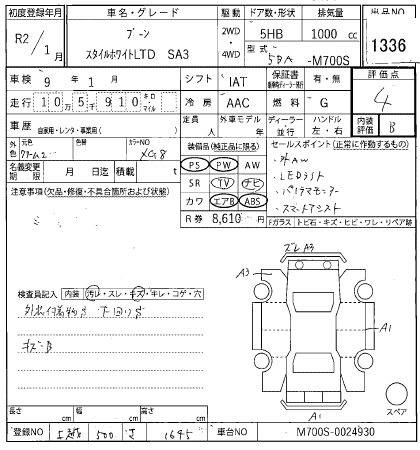 初度登録年月 車名・グレード 駆動 ドア数・形状 排気量 出品NO
R2/1月 ブーン 2WD・4WD 5HB 1000 cc 1336
スタイルホワイトLTD SA3 型式 5BA -M700S
車検 9年1月 シフト IAT 保証書 有・無 評価点
走行 105910 キロ・マイル 冷房 AAC 燃料 G 4
車歴 自家用・レンタ・事業用( ) 定員 人 外車モデル 年 ディーラー・並行 ハンドル 左・右 内装評価 B
外色 元色 色替 カラーNO 装備品(純正品に限る) セールスポイント(正常に作動するもの)
X08 PS PW AW ・社外AW
名義変更期限 月 日迄 積載 t SR TV ナビ ・LEDライト
注意事項(欠品・修復・不具合箇所および状態) カワ エアB ABS ・パノラマモニター
R券 8,610 ・スマートアシスト
Fガラス トビ石・キズ・ヒビ・ワレ・リペア跡
ズレ A3
A3
検査員記入 内装 汚レ・スレ・キズ・キレ・コゲ・穴
下回りS
A1
キズB
スペア
長さ cm 幅 cm 高さ cm
A1
登録NO 500 1645 車台NO M700S-0024930